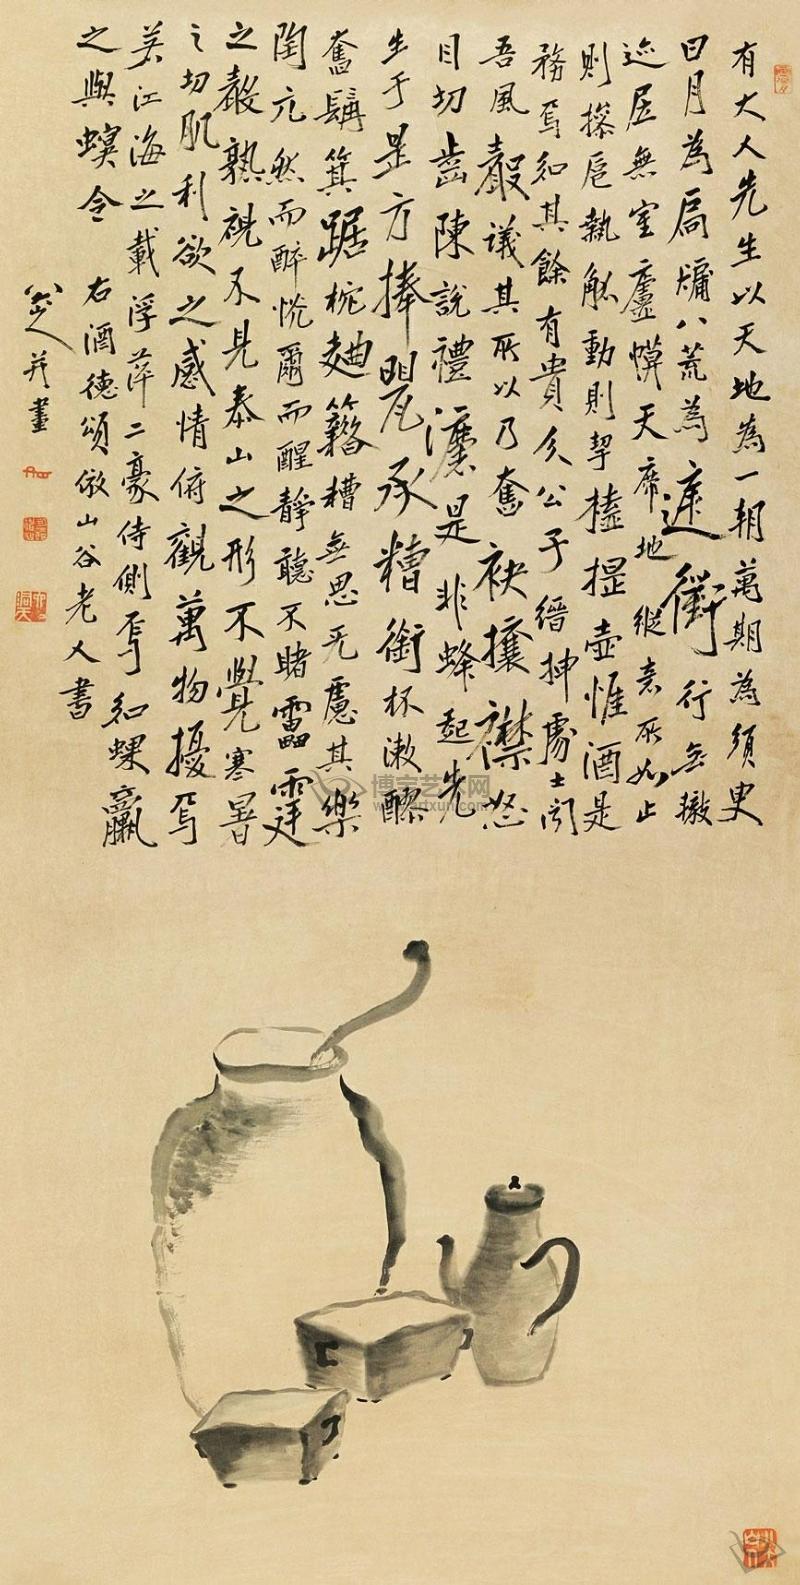 有大人先生以天地為一朝萬期為須臾
日月為扃牖八荒為庭衢行無轍
迹居無室廬幙天席地縱意所如止
則操巵執觚動則挈榼提壺惟酒是
務焉知其餘有貴介公子縉紳處士聞
吾風聲議其所以乃奮袂攘襟怒
目切齒陳說禮灋是非蜂起先
生于是方捧甖承糟銜杯漱醪
奮髯箕踞枕麯籍糟無思旡慮其樂
陶兀然而醉恍爾而醒靜聽不睹雷霆
之聲熟視不見泰山之形不覺寒暑
之切肌利欲之感情俯觀萬物擾焉
若江海之載浮萍二豪侍側焉知蜾蠃
之與螟令
右酒德頌倣山谷老人書
八大山人并畫
博宝艺术网
www.artxun.com